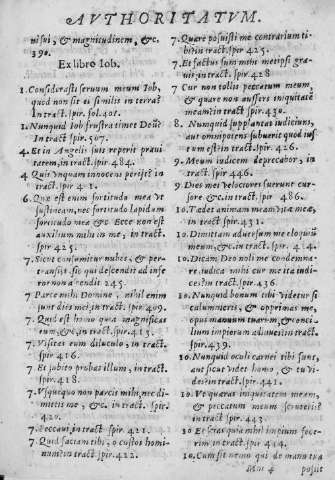 AVTHORITATVM.
uisui, & magnitudinem, &c.
390.
Ex libro Iob.
1. Considerasti seruum meum Iob,
quod non sit ei similis in terra?
In tract. spir. fol. 401.
1. Nunquid Iob frustra timet Deũ?
In tract. spir. 507.
4. Et in Angelis suis reperit praui
tatem, in tract. spir. 484.
4. Qui unquam innocens perijt? in
tract. spir
6. Quæ est enim fortitudo mea ut
sustineam, nec fortitudo lapidum
fortitudo mea &c Ecce non est
auxilium mihi in me, in tract.
spir 425
7. Sicut consumitur nubes, & per-
transit sic qui descendit ad infe
ros non ascendit 245.
7. Parce mihi Domine, nihil enim
sunt dies mei in tract. spir 409.
7. Quid est homo quia magnificas
eum, &c, in tract. spir. 413.
7. Visitas eum diluculo, in tract.
spir 416.
7. Et subito probas illum, in tract.
spir. 418.
7. Vsquequo non parcis mihi, nec di-
mittis me, &c. in tract. spir.
420.
7. Peccaui, in tract. spir 421.
7. Quid faciam tibi, o custos homi-
num? in tract spir. 422.
7. Quare posuisti me contrarium ti-
bi? in tract. spir 425.
7. Et factus sum mihi metipsi gra-
uis, in tract. spir. 428
7. Cur non tollis peccatum meum,
& quare non aufers iniquitatē
meam? in tract spir. 430.
8. Nunquid supplantat iudicium,
aut omnipotens subuertit quod ius
tum est in tract. spir 426.
9. Meum iudicem deprecabor, in
tract. spir 446.
9. Dies mei velociores fuerunt cur-
sore, &c. in tract. spir. 486
10. Tædet animam meam vitæ meæ,
in tract. spir. 431.
10. Dimittam aduersum me eloquiũ
meum, &c. in tract. spir. 4.
10. Dicam Deo noli me condemna-
re. iudica mihi cur me ita iudi-
ces? in tract. spir. 436.
10. Nunquid bonum tibi videtur si
calumnieris, & opprimas me,
opus manuum tuarum, & consi-
lium impiorum adiuues? in tract.
spir. 439.
10. Nunquid oculi carnei tibi sunt,
aut sicut videt homo, & tu vi-
des? in tract. spir. 441.
10. Vt quæras iniquitatem meam,
& peccatum meum scruteris?
in tract. spir. 443.
10. Et scias quia nihil impium fece-
rim in tract. spir 414.
10. Cum sit nemo qui de manu tua
Mm 4 possit